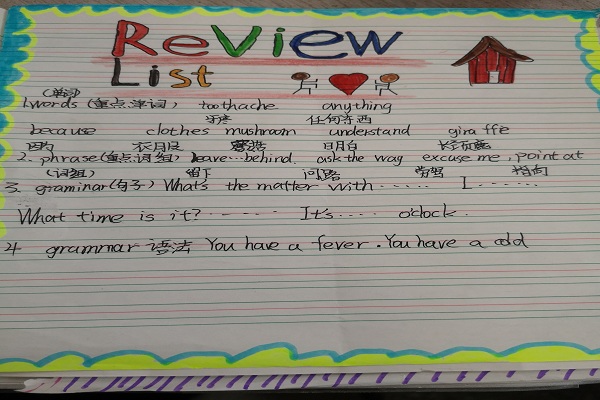 Review
List
(单词)
1.words (重点单词) toothache anything
牙疼 任何东西
because clothes mushroom understand giraffe
因为 衣服 蘑菇 明白 长颈鹿
2. phrase (重点词组) leave...behind. ask the way excuse me, point at
(词组) 留下 问路 指向
3. graminar (句子) What's the matter with ...... I .......
What time is it? ....... It's ..... o'clock.
4 grammar 语法 You have a fever. You have a